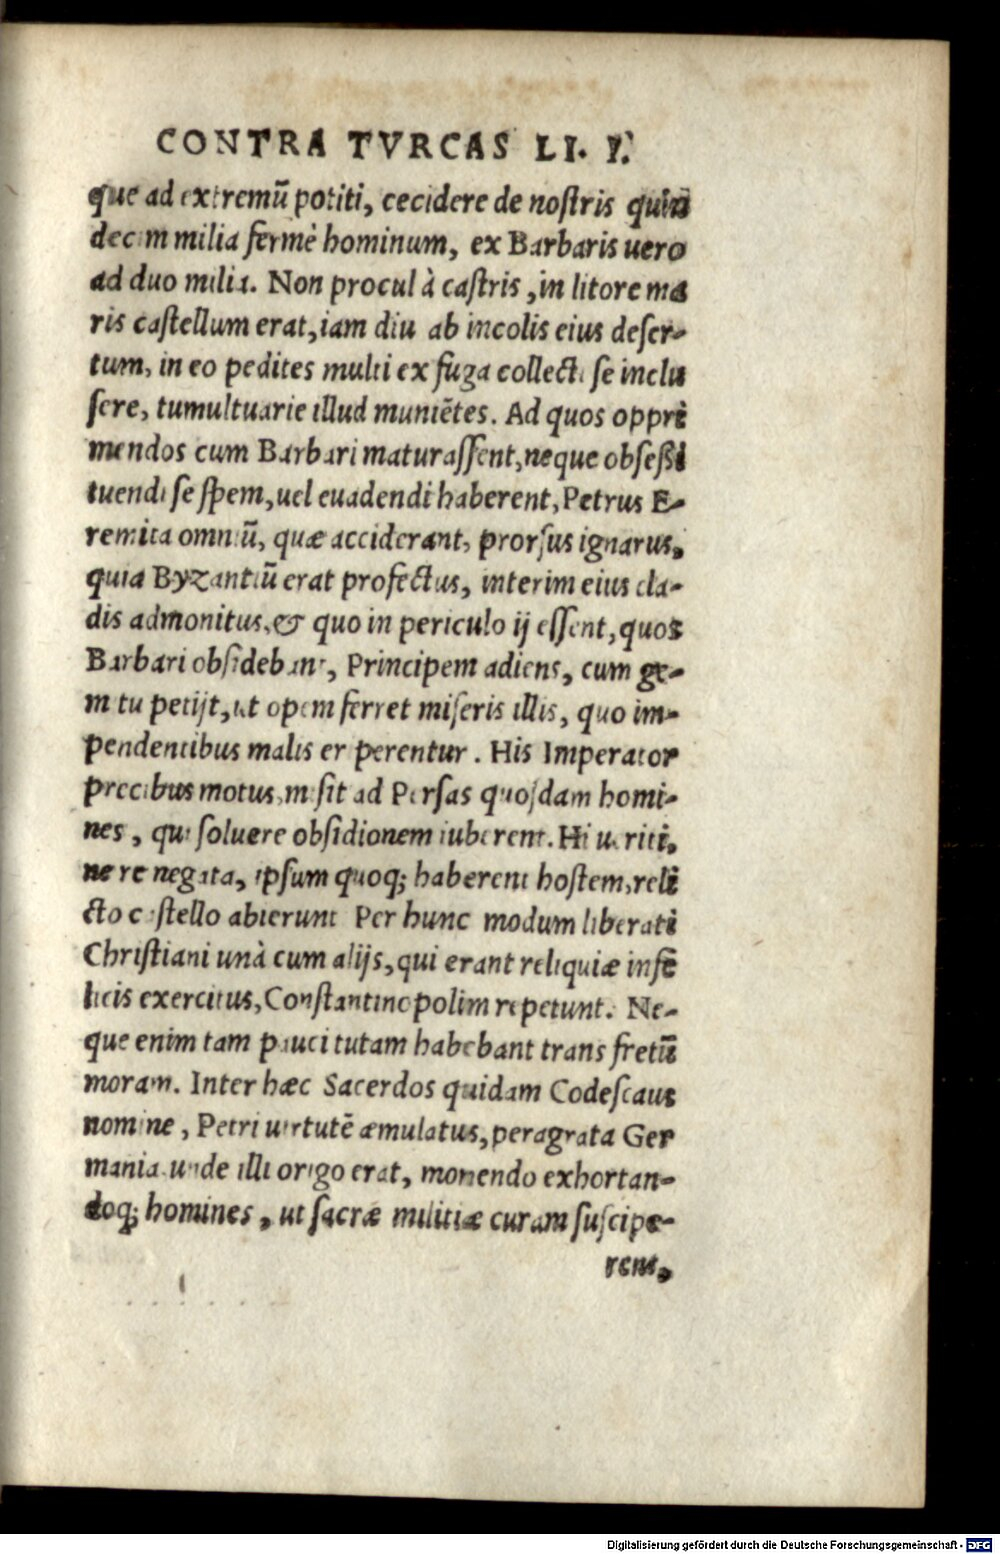 CONTRA TVRCAS LI. I.
que ad extremũ potiti, cecidere de nostris quin
decim milia fermè hominum, ex Barbaris uero
ad duo milia. Non procul à castris, in litore ma
ris castellum erat, iam diu ab incolis eius deser-
tum, in eo pedites multi ex fuga collecti se inclu
sere, tumultuarie illud muniẽtes. Ad quos oppri
mendos cum Barbari maturassent, neque obseßi
tuendi se spem, uel euadendi haberent, Petrus E-
remita omniũ, quæ acciderant, prorsus ignarus,
quia Byzantiũ erat profectus, interim eius cla-
dis admonitus, & quo in periculo ij essent, quos
Barbari obsidebant, Principem adiens, cum ge-
mitu petijt, ut opem ferret miseris illis, quo im-
pendentibus malis eriperentur. His Imperator
precibus motus, misit ad Persas quosdam homi-
nes, qui soluere obsidionem iuberent. Hi ueriti,
ne re negata, ipsum quoq; haberent hostem, reli
cto castello abierunt Per hunc modum liberati
Christiani unà cum alijs, qui erant reliquiæ infẽ
licis exercitus, Constantinopolim repetunt. Ne-
que enim tam pauci tutam habebant trans fretũ
moram. Inter hæc Sacerdos quidam Codescaus
nomine, Petri uirtutẽ æmulatus, peragrata Ger
mania unde illi origo erat, monendo exhortan-
doq; homines, ut sacræ militiæ curam suscipe-
rent,
Digitalisierung gefördert durch die Deutsche Forschungsgemeinschaft - DFG